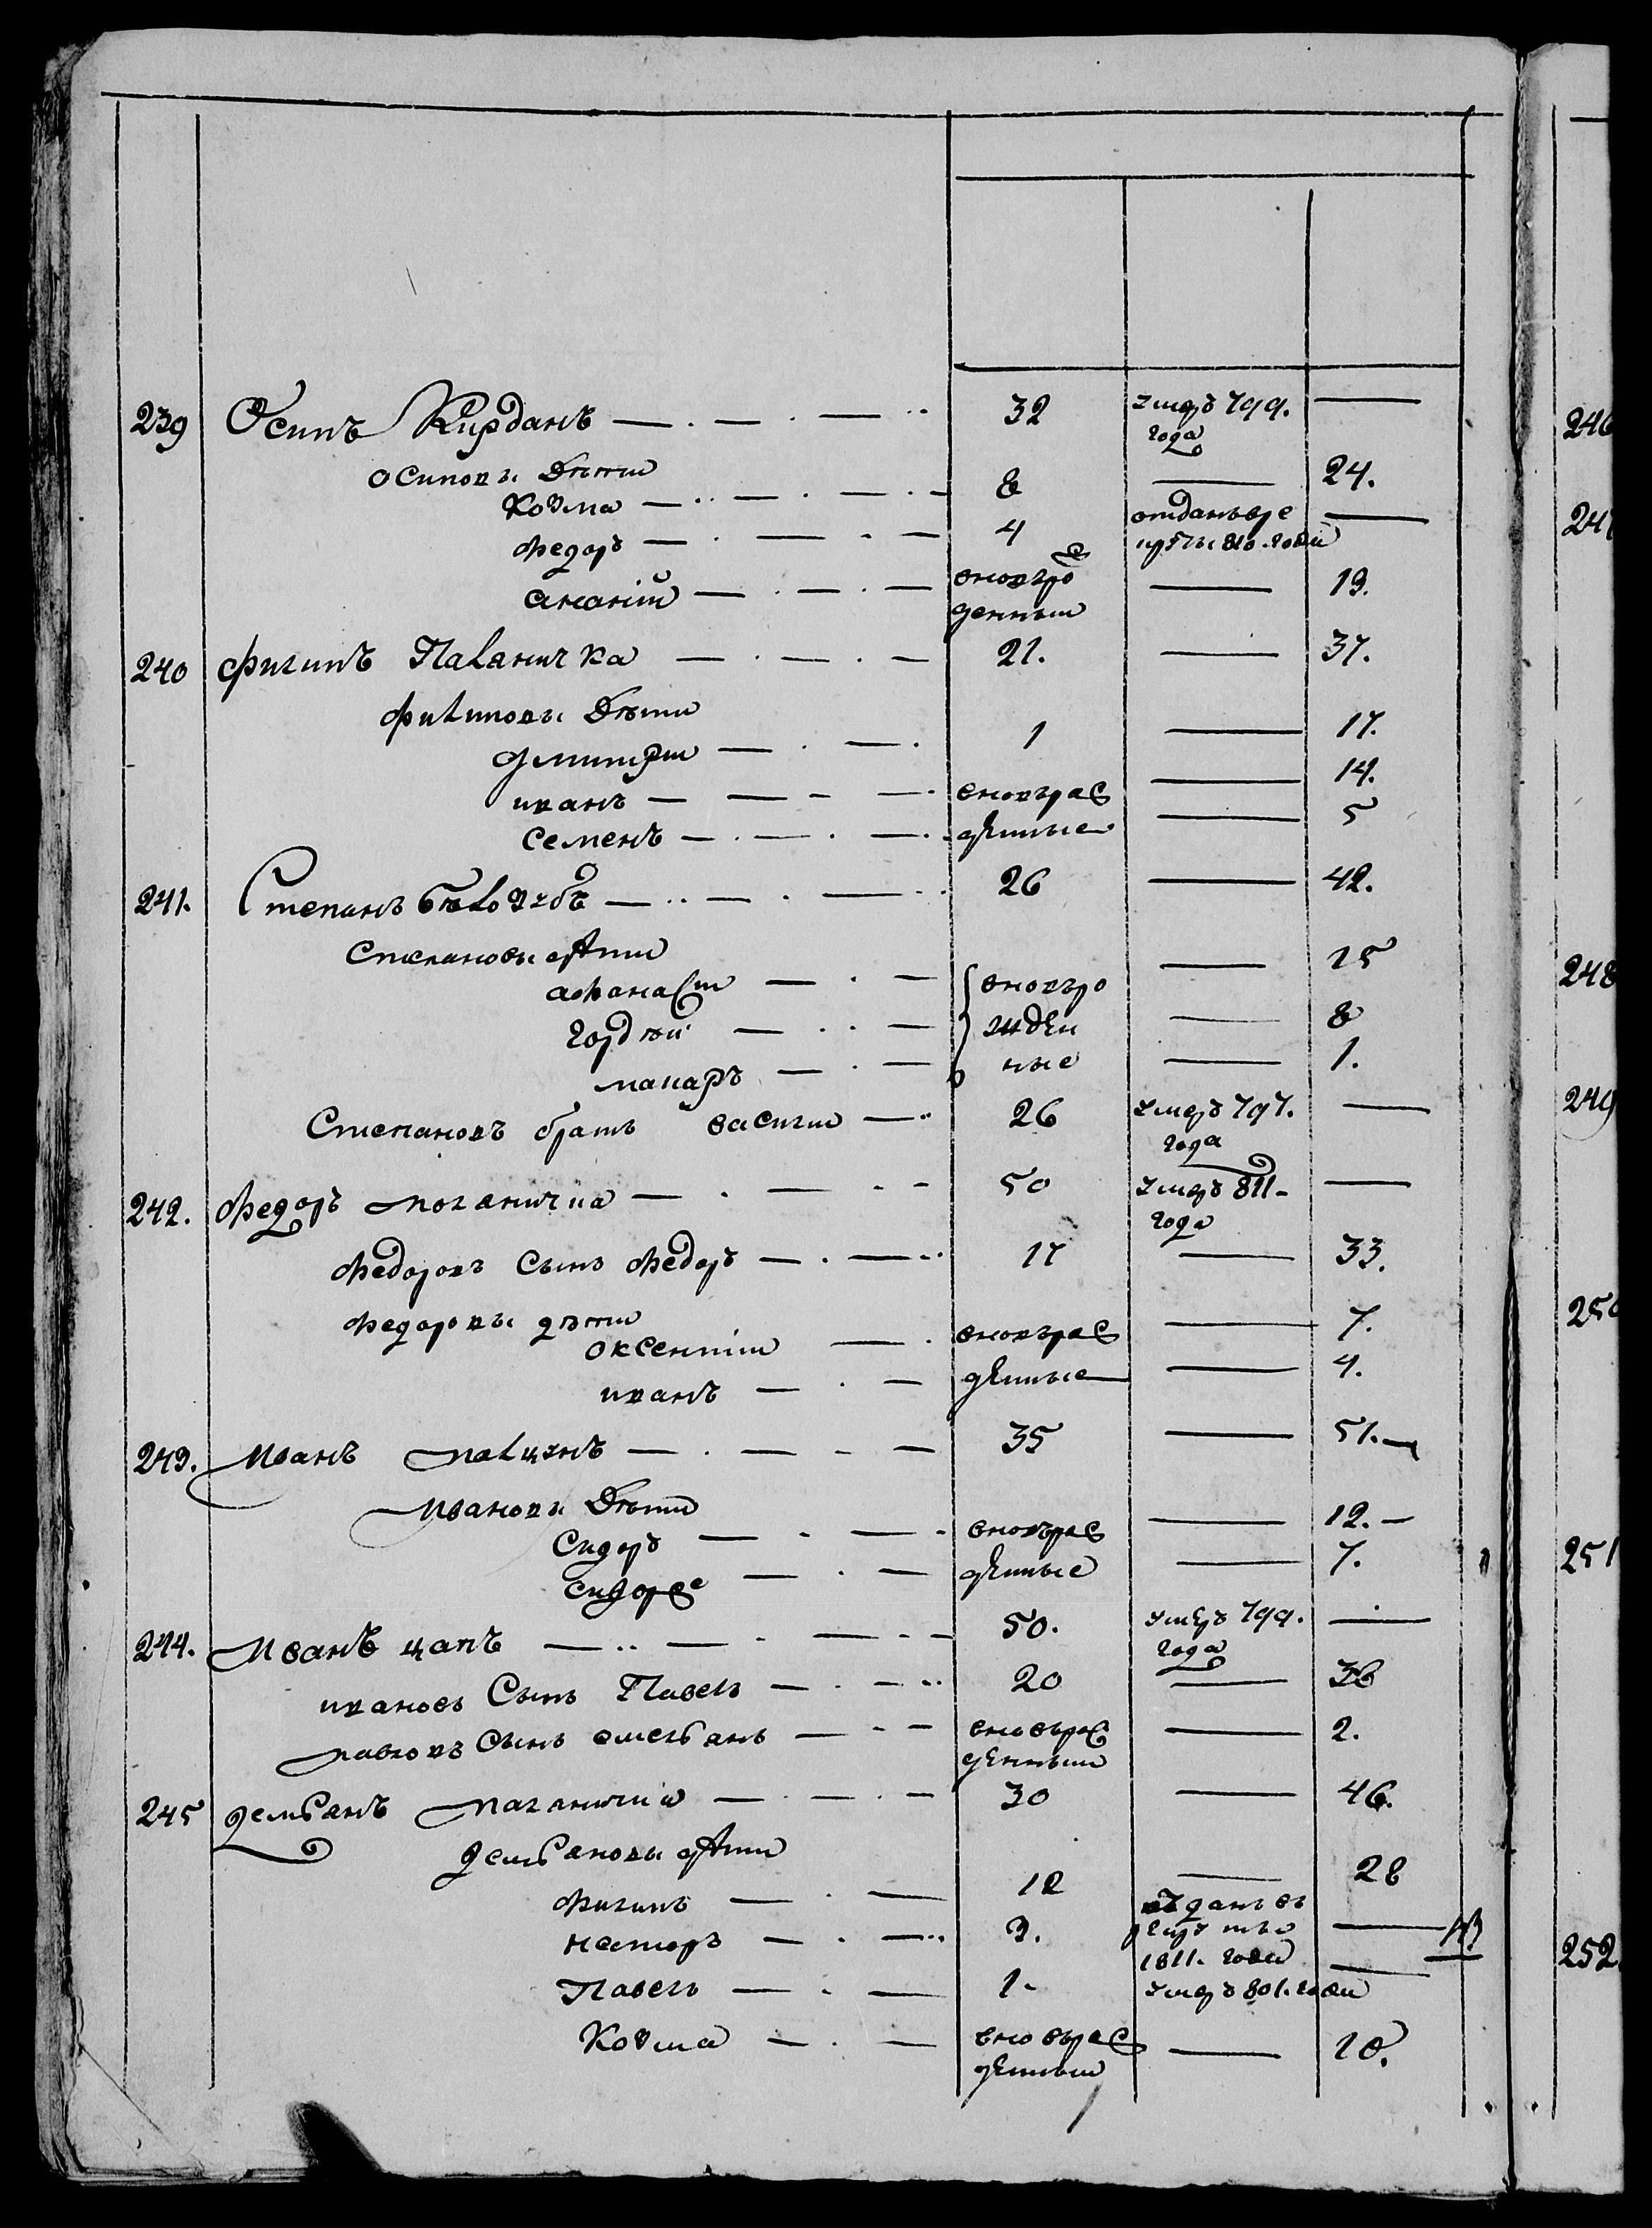 239 Осипъ Кирданъ 32 умеръ 799. года
Осиповы дѣти
Козма 8 24.
Федоръ 4 отданъ в ре крѣты 810. года
ананій вновь ро жденный 19.
240 Филипъ Паляничка 21. 37.
Филиповы дѣти
дмитри 1 17.
иванъ вновь рож 14.
Семенъ денные 5
241. Степанъ Бѣлозубъ 26 42.
Степановы дѣти
афанасіи вновь ро 15
гордѣй жден 8
макаръ ные 1.
Степановъ братъ василии 26 умеръ 797. года
242. Федоръ поляничка 50 умеръ 811. года
Федоровъ сынъ Федоръ 17 33.
Федоровы дѣти
оксентіи вновь рож 7.
иванъ денные 4.
243. Иванъ 35 51.
Ивановы дѣти
Сидоръ вновь рож 12.
Сидоръ же денные 7.
244. Иванъ цапъ 50. умеръ 799. года
ивановъ Сынъ Павелъ 20 36
павловъ Сынъ емельянъ вновь рож денныи 2.
245 демьянъ паляничка 30 46.
демьяновы дѣти
Филипъ 12 28
несторъ 3. отданъ въ рекруты 1811. года
Павелъ 1. умеръ 801. года
Козма вновь рож денныи 10.
13
246
247
248
249
250
251
252.